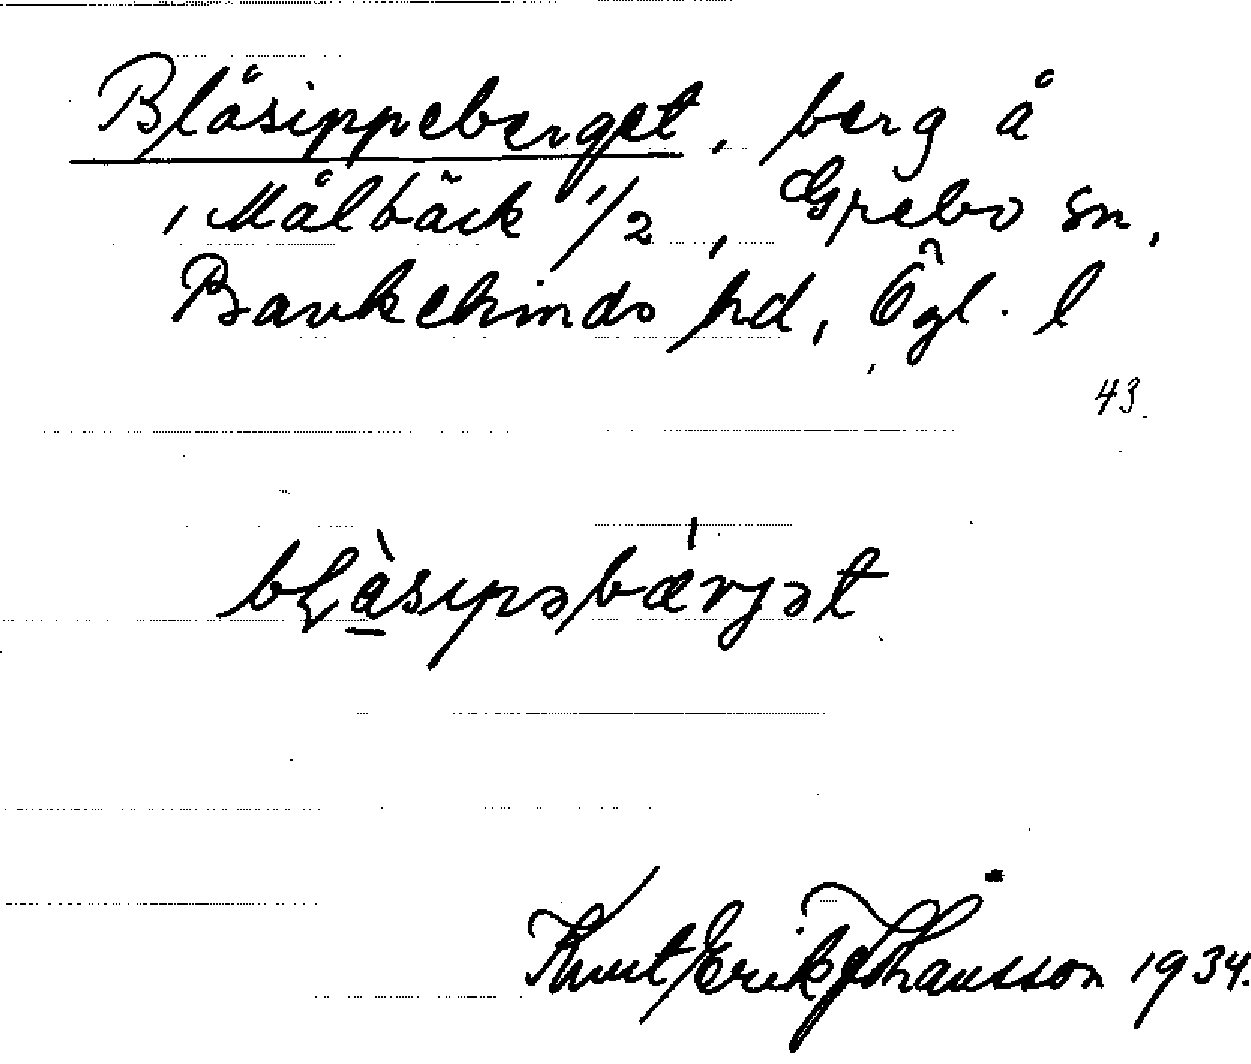 Blåsippeberget, berg å
, Målbäck 1/2, Grebo sn,
Bankekinds hd, Ögl. l
43.
bLå̀sipəbærjət
Knut Erik Johansson 1934.